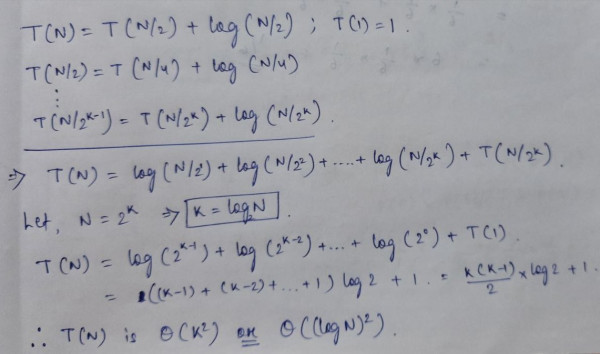 T(N) = T(N/2) + log(N/2) ; T(1) = 1.
T(N/2) = T(N/4) + log(N/4)
⋮
T(N/2^{k-1}) = T(N/2^k) + log(N/2^k).
⇒ T(N) = log(N/2^1) + log(N/2^2) + ..... + log(N/2^k) + T(N/2^k).
Let, N = 2^k ⇒ K = log_2 N.
T(N) = log(2^{k-1}) + log(2^{k-2}) + ... + log(2^0) + T(1).
= ((k-1) + (k-2) + ... + 1) log 2 + 1. = K(K-1)/2 × log 2 + 1.
∴ T(N) is Θ(K^2) or Θ((log N)^2).